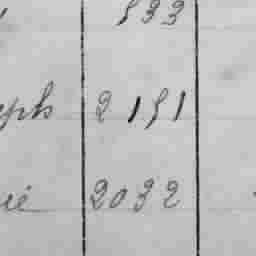 533
eph 2151
ié 2032